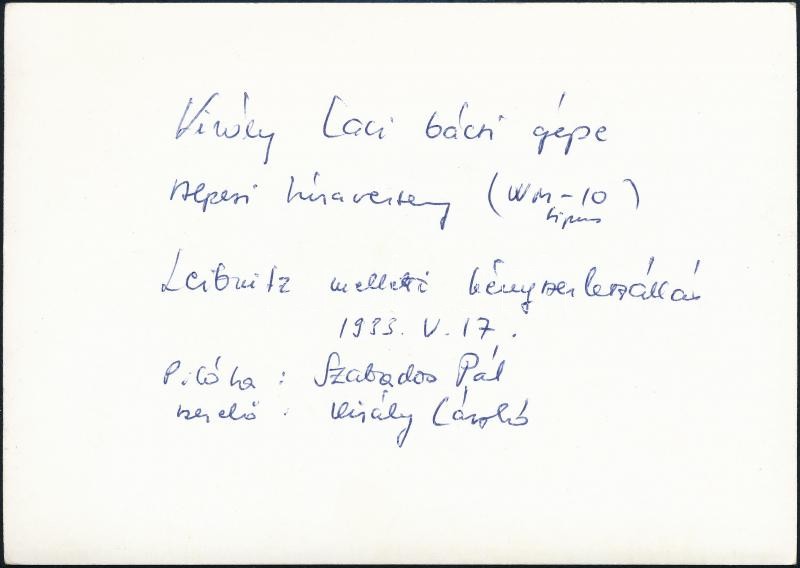 Király Laci bácsi gépe
Alpesi túraverseny (WM-10
tipus)
Leibnitz melletti kényszerleszállás
1933. V. 17.
Pilóta : Szabados Pál
szerelő : Király László